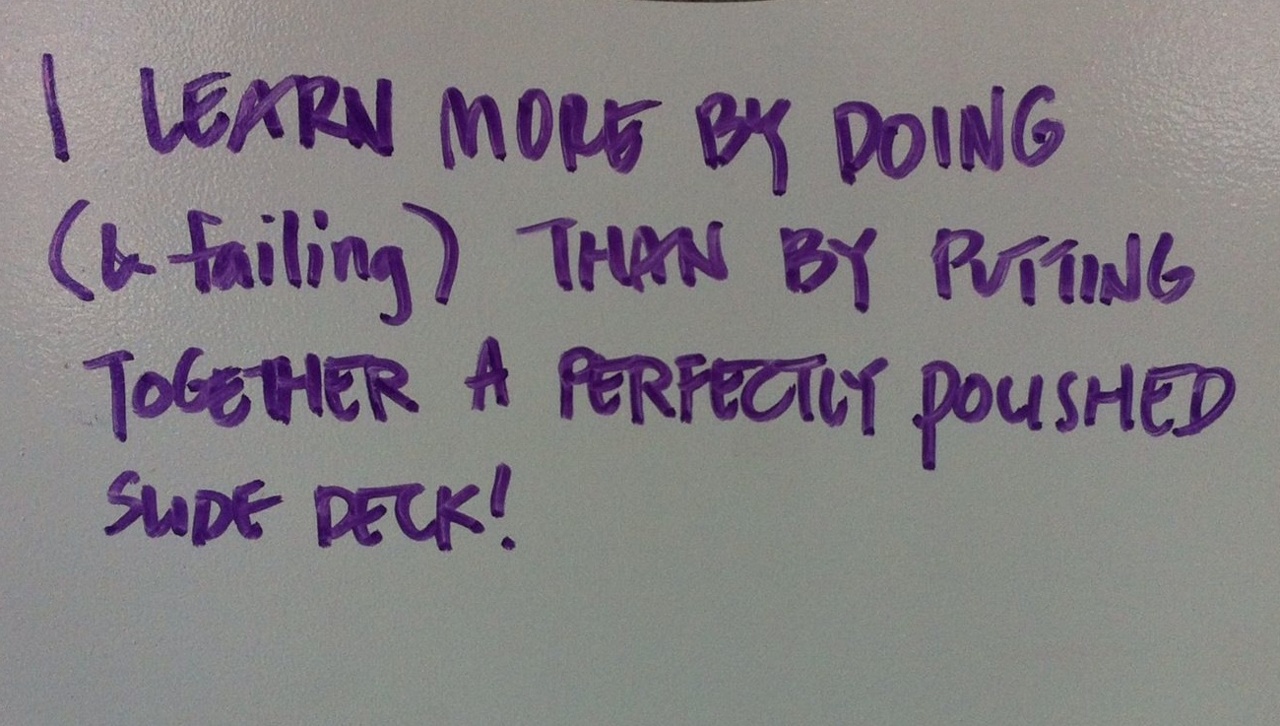 I LEARN MORE BY DOING
(& failing) THAN BY PUTTING
TOGETHER A PERFECTLY POLISHED
SLIDE DECK!